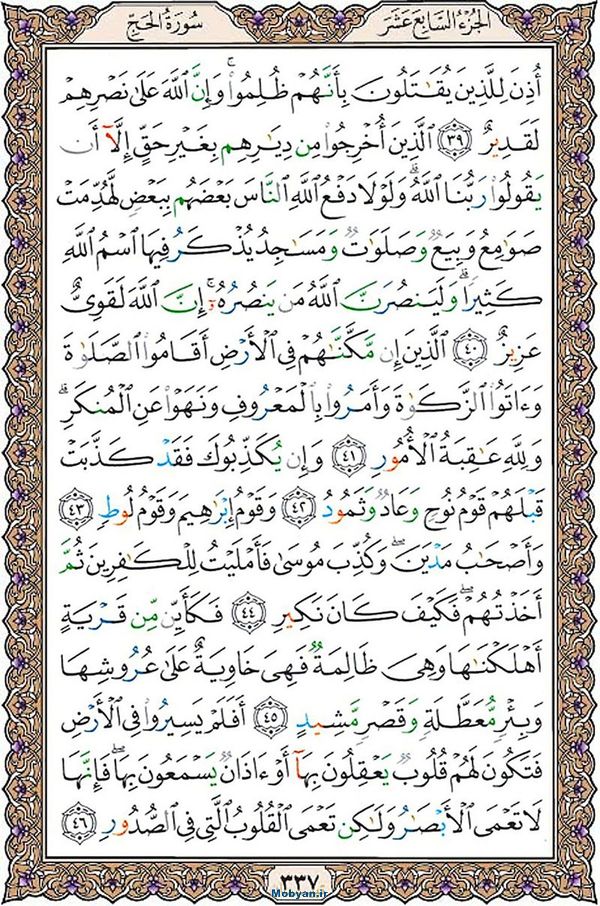 الجزء السابع عشر
سورة الحج
أُذِنَ لِلَّذِينَ يُقَٰتَلُونَ بِأَنَّهُمْ ظُلِمُوا۟ ۚ وَإِنَّ ٱللَّهَ عَلَىٰ نَصْرِهِمْ
لَقَدِيرٌ ٣٩ ٱلَّذِينَ أُخْرِجُوا۟ مِن دِيَٰرِهِم بِغَيْرِ حَقٍّ إِلَّآ أَن
يَقُولُوا۟ رَبُّنَا ٱللَّهُ ۗ وَلَوْلَا دَفْعُ ٱللَّهِ ٱلنَّاسَ بَعْضَهُم بِبَعْضٍ لَّهُدِّمَتْ
صَوَٰمِعُ وَبِيَعٌ وَصَلَوَٰتٌ وَمَسَٰجِدُ يُذْكَرُ فِيهَا ٱسْمُ ٱللَّهِ
كَثِيرًا ۗ وَلَيَنصُرَنَّ ٱللَّهُ مَن يَنصُرُهُۥٓ ۗ إِنَّ ٱللَّهَ لَقَوِىٌّ
عَزِيزٌ ٤٠ ٱلَّذِينَ إِن مَّكَّنَّٰهُمْ فِى ٱلْأَرْضِ أَقَامُوا۟ ٱلصَّلَوٰةَ
وَءَاتَوُا۟ ٱلزَّكَوٰةَ وَأَمَرُوا۟ بِٱلْمَعْرُوفِ وَنَهَوْا۟ عَنِ ٱلْمُنكَرِ ۗ
وَلِلَّهِ عَٰقِبَةُ ٱلْأُمُورِ ٤١ وَإِن يُكَذِّبُوكَ فَقَدْ كَذَّبَتْ
قَبْلَهُمْ قَوْمُ نُوحٍ وَعَادٌ وَثَمُودُ ٤٢ وَقَوْمُ إِبْرَٰهِيمَ وَقَوْمُ لُوطٍ ٤٣
وَأَصْحَٰبُ مَدْيَنَ ۖ وَكُذِّبَ مُوسَىٰ فَأَمْلَيْتُ لِلْكَٰفِرِينَ ثُمَّ
أَخَذْتُهُمْ ۖ فَكَيْفَ كَانَ نَكِيرِ ٤٤ فَكَأَيِّن مِّن قَرْيَةٍ
أَهْلَكْنَٰهَا وَهِىَ ظَالِمَةٌ فَهِىَ خَاوِيَةٌ عَلَىٰ عُرُوشِهَا
وَبِئْرٍ مُّعَطَّلَةٍ وَقَصْرٍ مَّشِيدٍ ٤٥ أَفَلَمْ يَسِيرُوا۟ فِى ٱلْأَرْضِ
فَتَكُونَ لَهُمْ قُلُوبٌ يَعْقِلُونَ بِهَآ أَوْ ءَاذَانٌ يَسْمَعُونَ بِهَا ۖ فَإِنَّهَا
لَا تَعْمَى ٱلْأَبْصَٰرُ وَلَٰكِن تَعْمَى ٱلْقُلُوبُ ٱلَّتِى فِى ٱلصُّدُورِ ٤٦
٣٣٧
Mobyan.ir